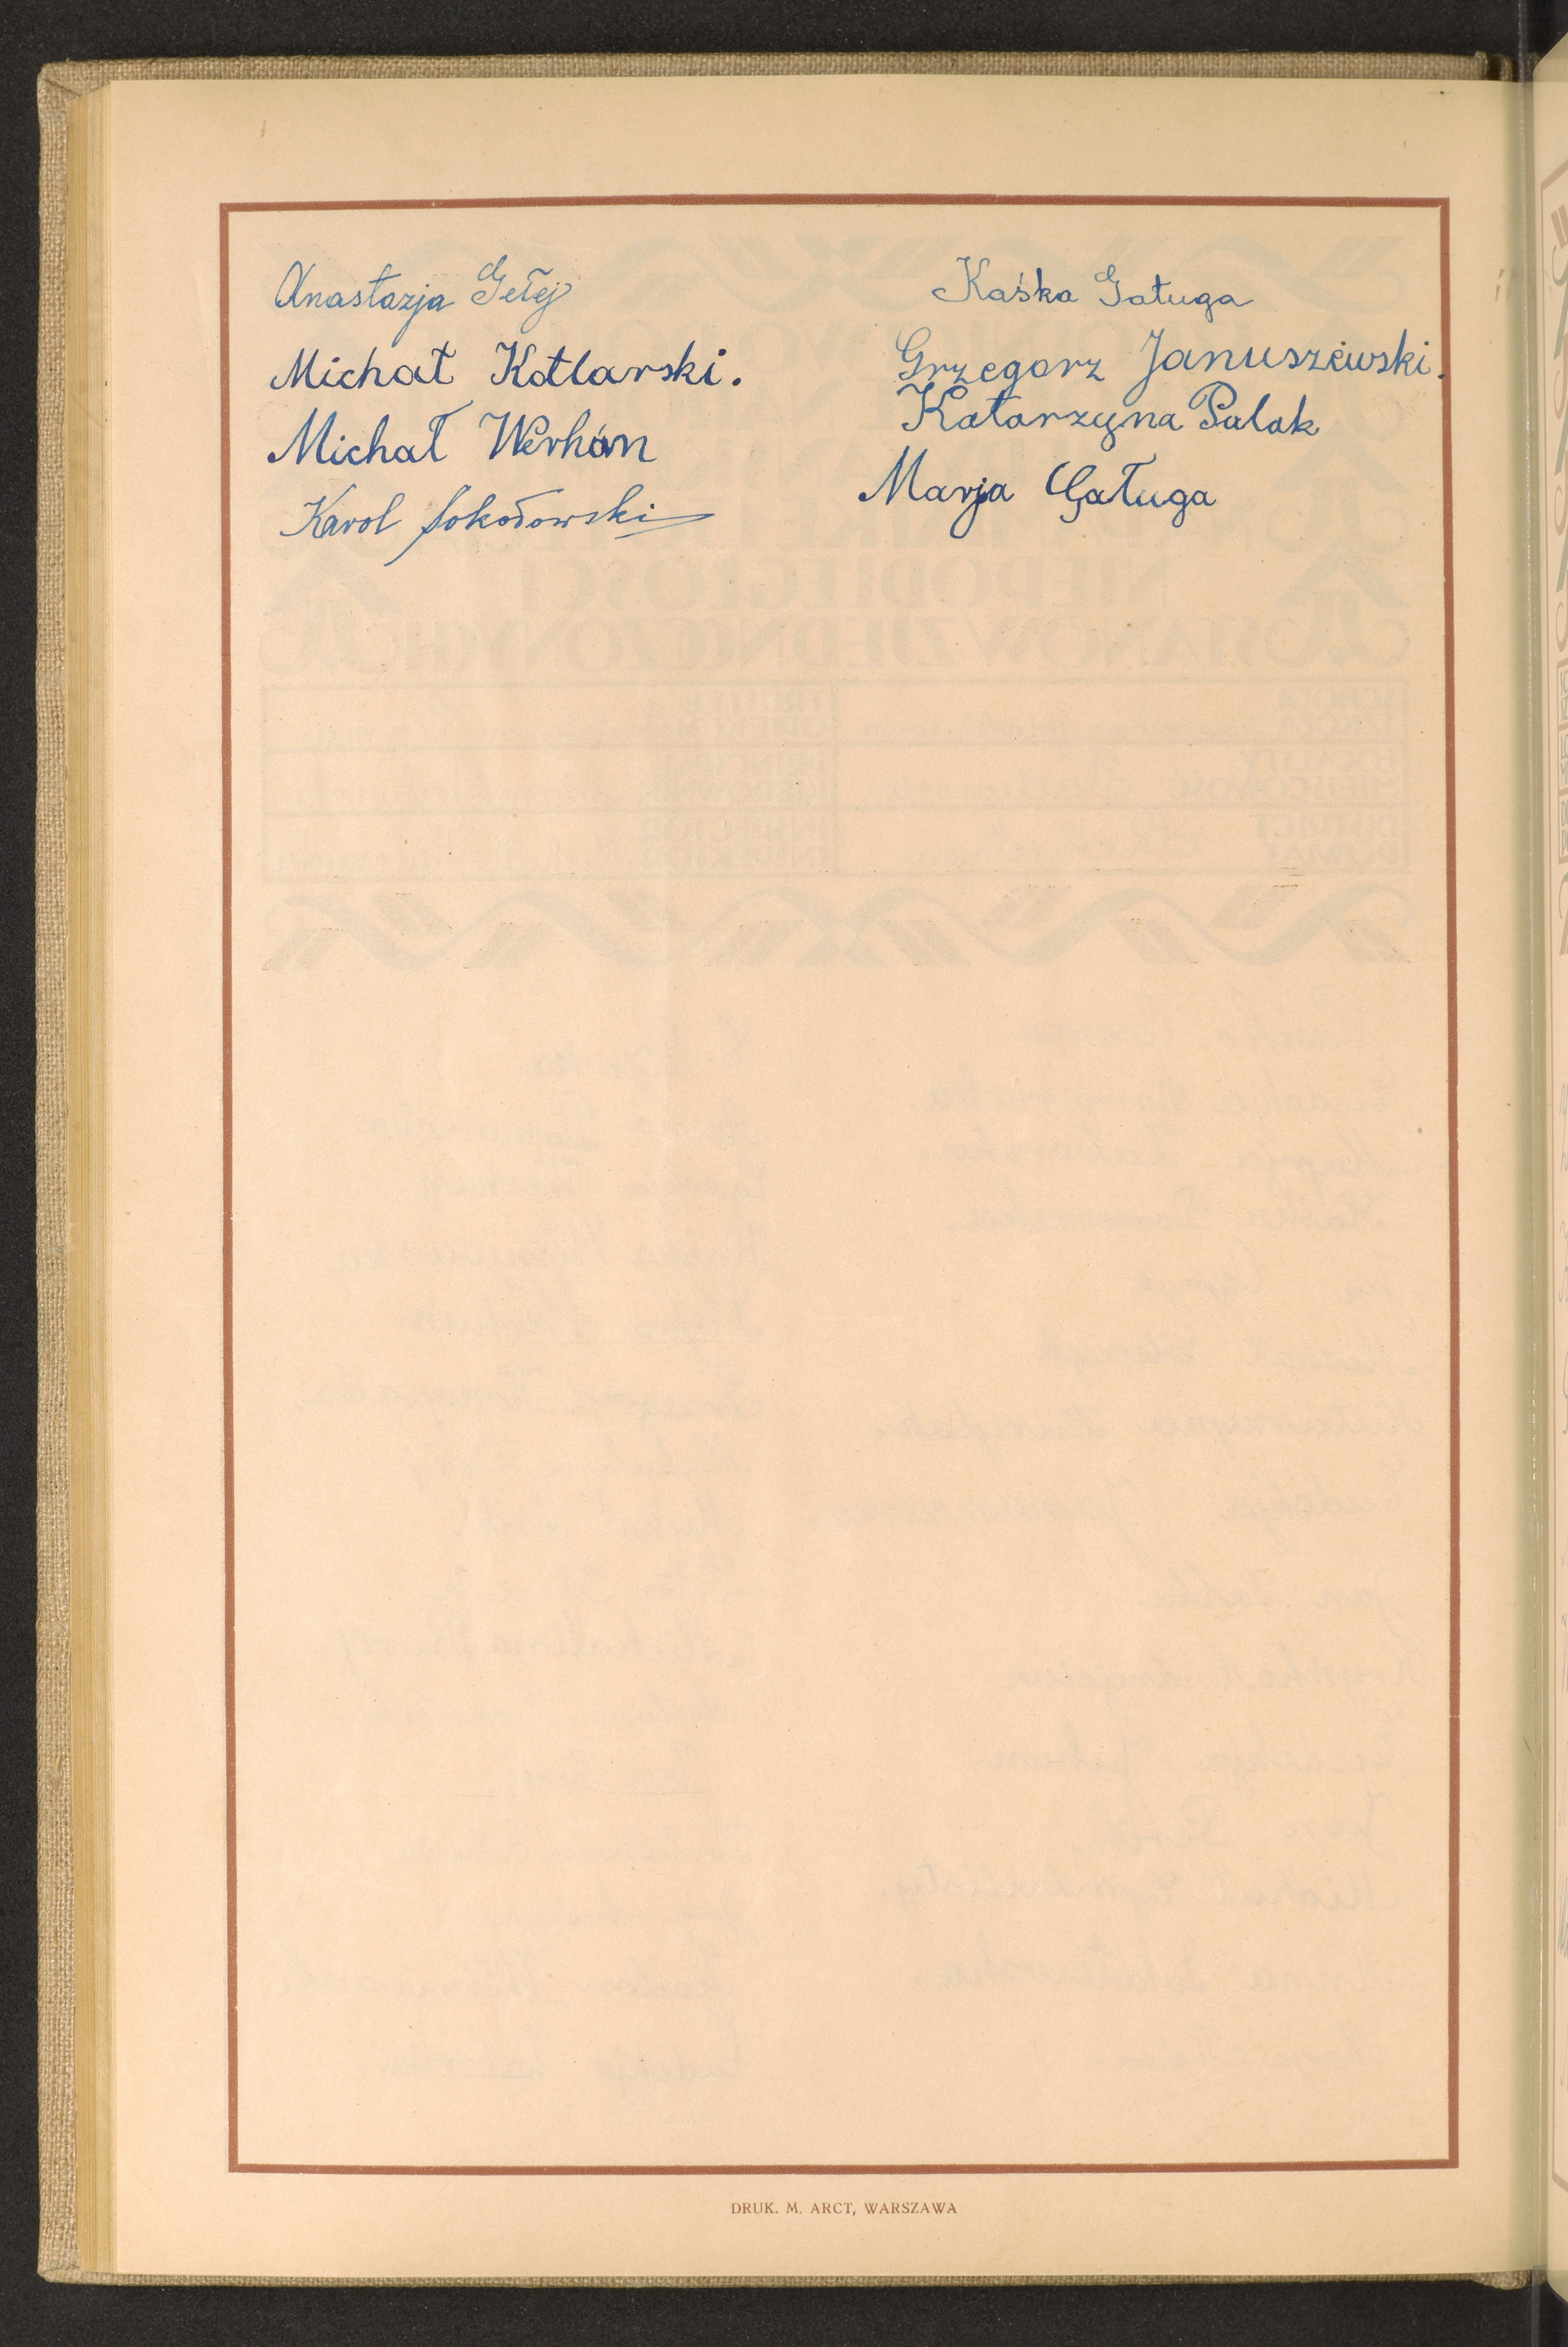 Anastazja Gełej
Michał Kotlarski.
Michał Werhan
Karol Sokołowski
Kaśka Gatuga
Grzegorz Januszewski.
Katarzyna Palak
Marja Gaługa
DRUK. M. ARCT, WARSZAWA